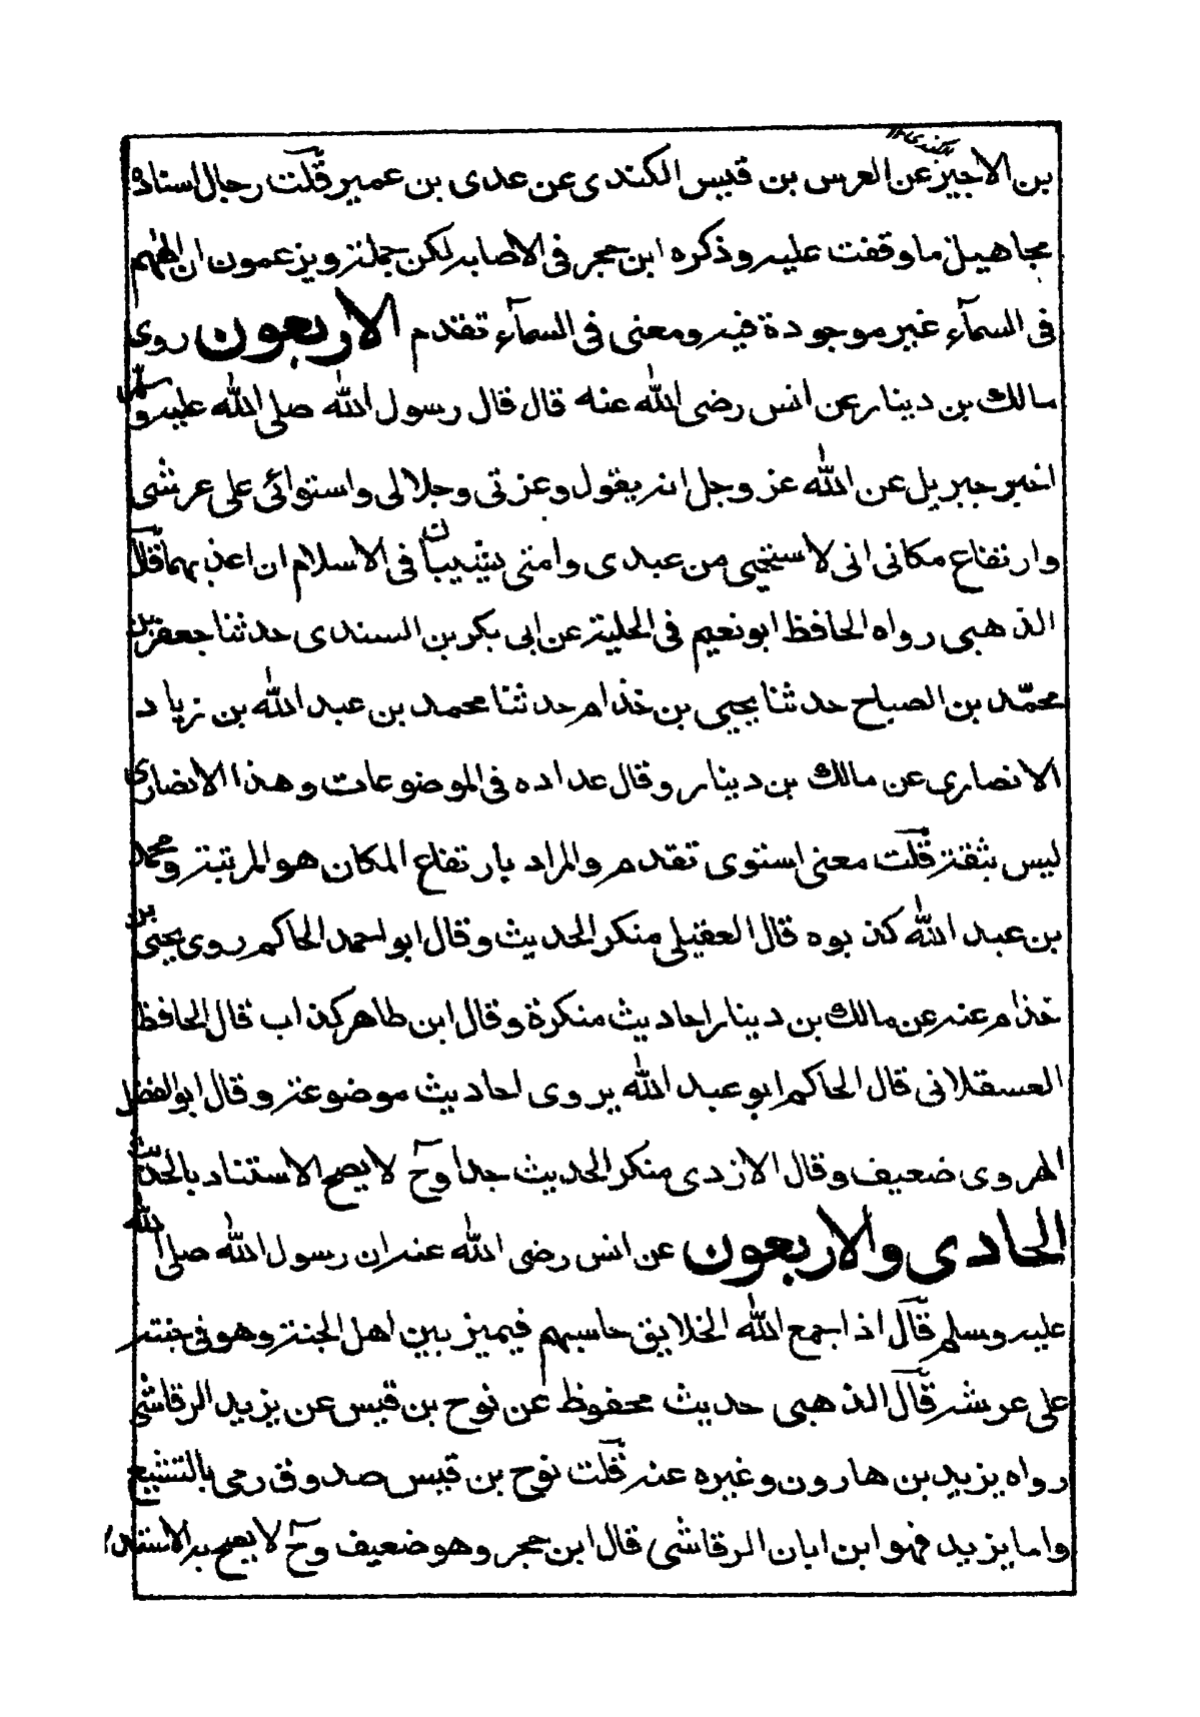 بن الاجيز عن العرس بن قيس الكندى عن عدى بن عمير قلت رجال اسناده
مجاهيل ما وقفت عليه وذكره ابن حجر فى الاصابه لكن جملته ويزعمون ان الههم
فى السمآء غير موجودة فيه ومعنى فى السمآء تقدم الاربعون روى
مالك بن دينار عن انس رضى الله عنه قال قال رسول الله صلى الله عليه وسلم
اخبر جبريل عن الله عز وجل انه يقول وعزتى وجلالى واستوائى على عرشى
وارتفاع مكانى انى لاستحيى من عبدى وامتى يشيبان فى الاسلام ان اعذبهما قال
الذهبى رواه الحافظ ابو نعيم فى الحلية عن ابى بكر بن السندى حدثنا جعفر بن
محمّد بن الصباح حدثنا يحيى بن خذام حدثنا محمد بن عبد الله بن زياد
الانصارى عن مالك بن دينار وقال عداده فى الموضوعات وهذا الانصارى
ليس بثقة قلت معنى استوى تقدم والمراد بارتفاع المكان هو المرتبة ومحمد
بن عبد الله كذبوه قال العقيلى منكر الحديث وقال ابو احمد الحاكم روى يحيى بن
خذام عنه عن مالك بن دينار احاديث منكرة وقال ابن طاهر كذاب قال الحافظ
العسقلانى قال الحاكم ابو عبد الله يروى احاديث موضوعة وقال ابو الفضل
الهروى ضعيف وقال الازدى منكر الحديث جدا وح لا يصح الاستناد بالحديث
الحادى والاربعون عن انس رضى الله عنه ان رسول الله صلى الله
عليه وسلم قال اذا جمع الله الخلايق حاسبهم فيميز بين اهل الجنة وهو فى جنته
على عرشه قال الذهبى حديث محفوظ عن نوح بن قيس عن يزيد الرقاشى
رواه يزيد بن هارون وغيره عنه قلت نوح بن قيس صدوق رمى بالتشيع
واما يزيد فهو ابن ابان الرقاشى قال ابن حجر وهو ضعيف وح لا يصح به